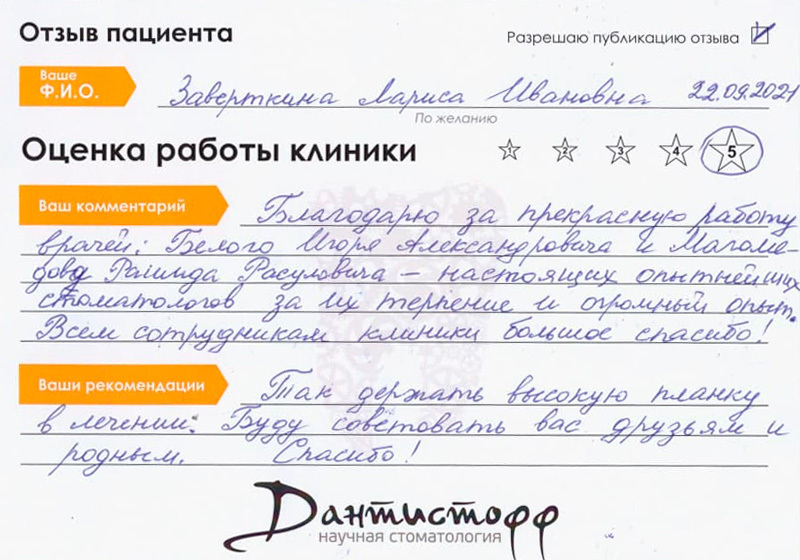 Отзыв пациента
Разрешаю публикацию отзыва
Ваше
Ф.И.О.
Заверткина Лариса Ивановна 22.09.2021
По желанию
Оценка работы клиники
1 2 3 4 5
Ваш комментарий
Благодарю за прекрасную работу
врачей: Белого Игоря Александровича и Магоме-
дова Рашида Расуловича – настоящих опытнейших
стоматологов за их терпение и огромный опыт.
Всем сотрудникам клиники большое спасибо!
Ваши рекомендации
Так держать высокую планку
в лечении. Буду советовать вас друзьям и
родным. Спасибо!
Дантистофф
научная стоматология